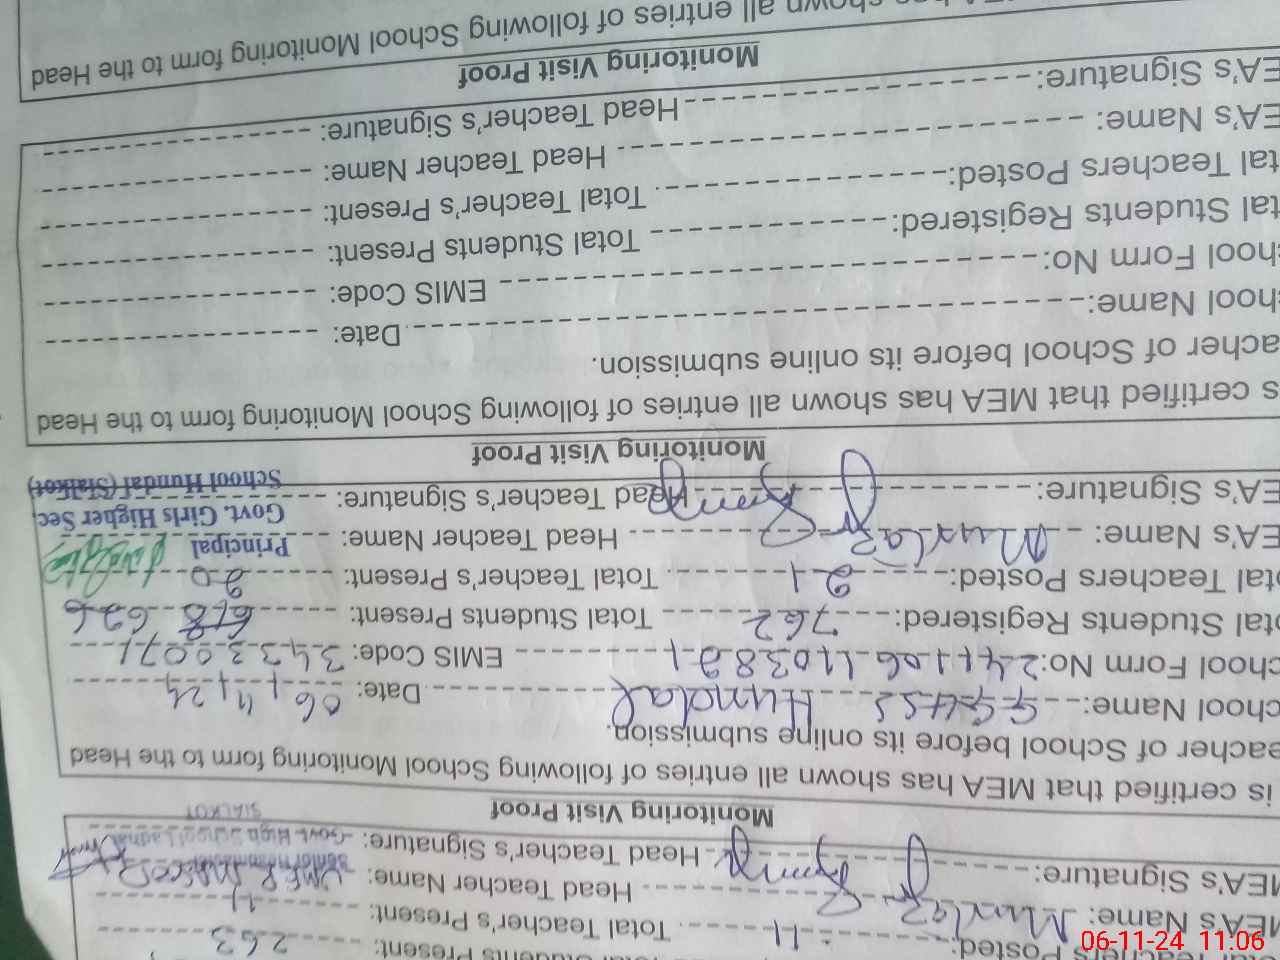 Teachers Posted: 11 Total Teacher's Present: 11
MEA's Name: Head Teacher Name: UMER
MEA's Signature: Head Teacher's Signature:
Govt. High School
SIALKOT
Monitoring Visit Proof
is certified that MEA has shown all entries of following School Monitoring form to the Head
eacher of School before its online submission.
chool Name: GGHSS Hundal Date: 06/11/24
chool Form No: EMIS Code: 34330071
otal Students Registered: 762 Total Students Present: 618 626
otal Teachers Posted: 21 Total Teacher's Present: 20
EA's Name: Head Teacher Name:
EA's Signature: Head Teacher's Signature:
Principal
Govt. Girls Higher Sec
School Hundal (Sialkot)
Monitoring Visit Proof
s certified that MEA has shown all entries of following School Monitoring form to the Head
acher of School before its online submission.
hool Name: Date:
hool Form No: EMIS Code:
tal Students Registered: Total Students Present:
tal Teachers Posted: Total Teacher's Present:
EA's Name: Head Teacher Name:
EA's Signature: Head Teacher's Signature:
Monitoring Visit Proof
shown all entries of following School Monitoring form to the Head
06-11-24 11:06